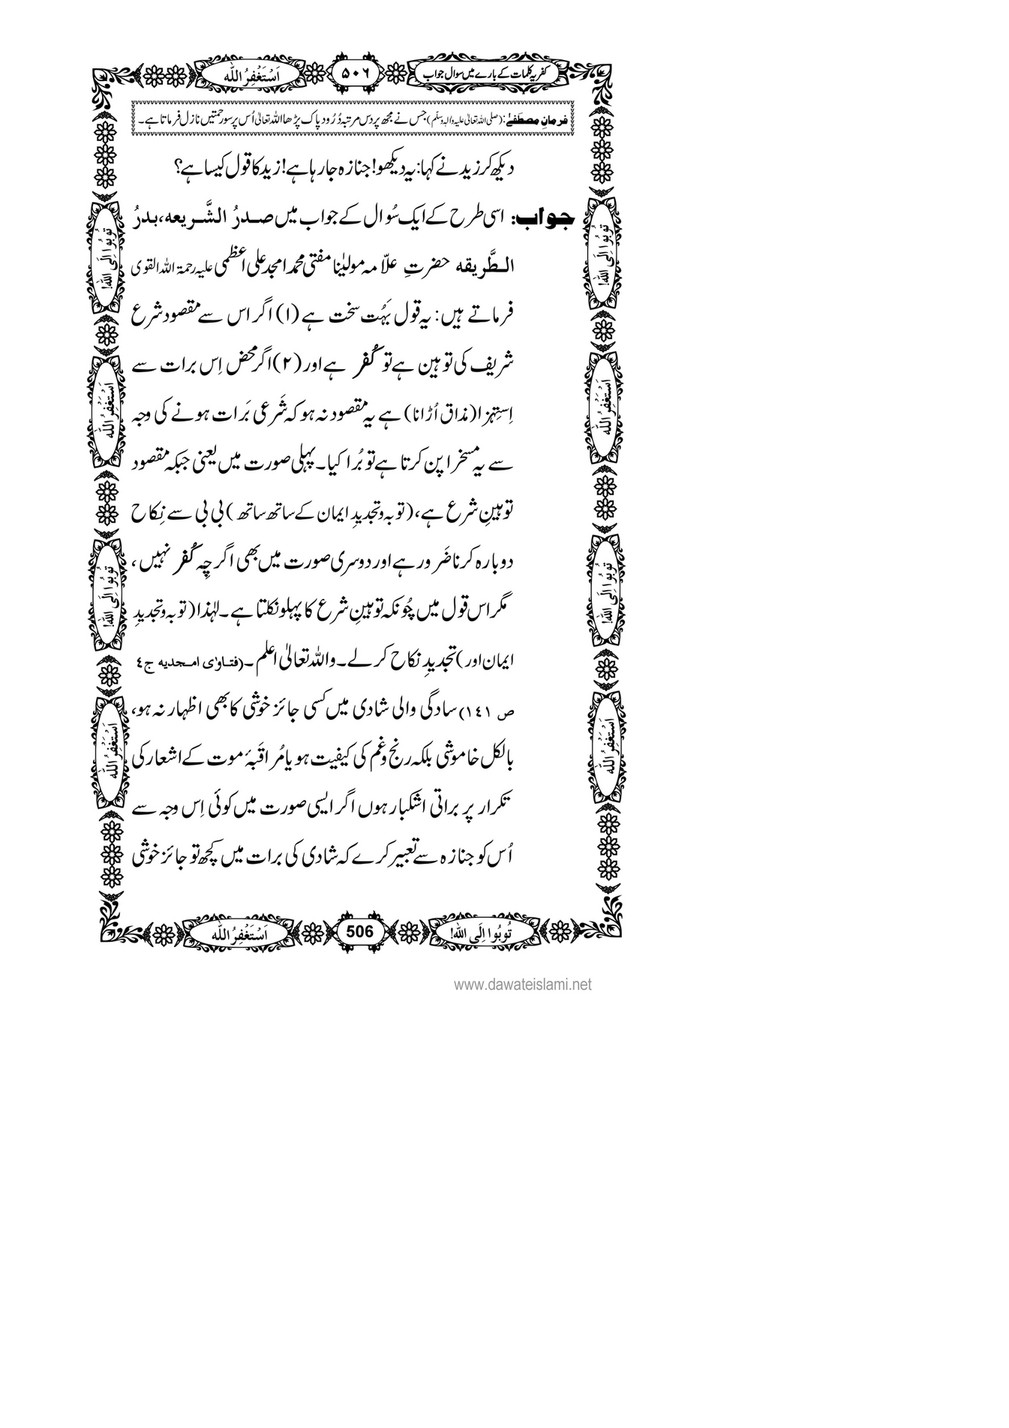 کفریہ کلمات کے بارے میں سوال جواب
۵۰٦
اَسْتَغْفِرُ اللّٰہ
فرمانِ مصطفےٰ: (صلی اللہ تعالیٰ علیہ والہ وسلّم) جس نے مجھ پر دس مرتبہ دُرُود پاک پڑھا اللہ تعالیٰ اُس پر سو رحمتیں نازل فرماتا ہے۔
دیکھ کر زید نے کہا: یہ دیکھو! جنازہ جا رہا ہے! زید کا قول کیسا ہے؟
جواب: اسی طرح کے ایک سُوال کے جواب میں صدرُ الشَّریعہ، بدرُ
الطَّریقہ حضرتِ علّامہ مولیٰنا مفتی محمد امجد علی اعظمی علیہ رحمۃ اللہ القوی
فرماتے ہیں: یہ قول بَہُت سخت ہے (۱) اگر اس سے مقصود شرع
شریف کی توہین ہے تو کُفر ہے اور (۲) اگر محض اِس برات سے
اِستِہزا (مذاق اُڑانا) ہے یہ مقصود نہ ہو کہ شَرعی بَرات ہونے کی وجہ
سے یہ مسخراپن کرتا ہے تو بُرا کیا۔ پہلی صورت میں یعنی جبکہ مقصود
توہینِ شرع ہے، (توبہ وتجدیدِ ایمان کے ساتھ ساتھ) بی بی سے نِکاح
دوبارہ کرنا ضَرور ہے اور دوسری صورت میں بھی اگرچِہ کُفر نہیں،
مگر اس قول میں چُونکہ توہینِ شرع کا پہلو نکلتا ہے۔ لہٰذا (توبہ وتجدیدِ
ایمان اور) تجدیدِ نکاح کر لے۔ واللہ تعالیٰ اعلم۔ (فتاوٰی امجدیہ ج٤
ص ۱٤۱) سادگی والی شادی میں کسی جائز خوشی کا بھی اظہار نہ ہو،
بالکل خاموشی بلکہ رنج وغم کی کیفیت ہو یا مُراقَبۂ موت کے اشعار کی
تکرار پر براتی اشکبار ہوں اگر ایسی صورت میں کوئی اِس وجہ سے
اُس کو جنازہ سے تعبیر کرے کہ شادی کی برات میں کچھ تو جائز خوشی
تُوبُوا اِلَی اللّٰہ!
اَسْتَغْفِرُ اللّٰہ
تُوبُوا اِلَی اللّٰہ!
اَسْتَغْفِرُ اللّٰہ
تُوبُوا اِلَی اللّٰہ!
اَسْتَغْفِرُ اللّٰہ
تُوبُوا اِلَی اللّٰہ!
اَسْتَغْفِرُ اللّٰہ
تُوبُوا اِلَی اللّٰہ!
506
اَسْتَغْفِرُ اللّٰہ
www.dawateislami.net